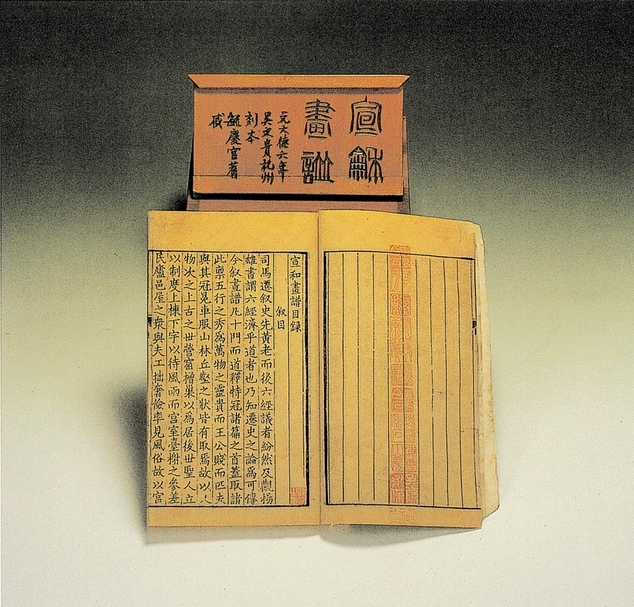 宣龢
畫譜
元大德六年
吳文貴杭州
刻本
毓慶宮舊
藏
宣和畫譜目錄
叙目
司馬遷叙史先黃老而後六經議者紛然及觀揚
雄書謂六經濟乎道者也乃知遷史之論為可傳
今叙畫譜凡十門而道釋特冠諸篇之首蓋取諸
此禀五行之秀為萬物之靈貴而王公賤而匹夫
與其冠冕車服山林丘壑之狀皆有取焉故以人
物次之上古之世營窟橧巢以為居後世聖人立
以制度上棟下宇以待風雨而宮室臺榭之參差
民廬邑屋之衆與夫工拙奢儉率見風俗故以宮